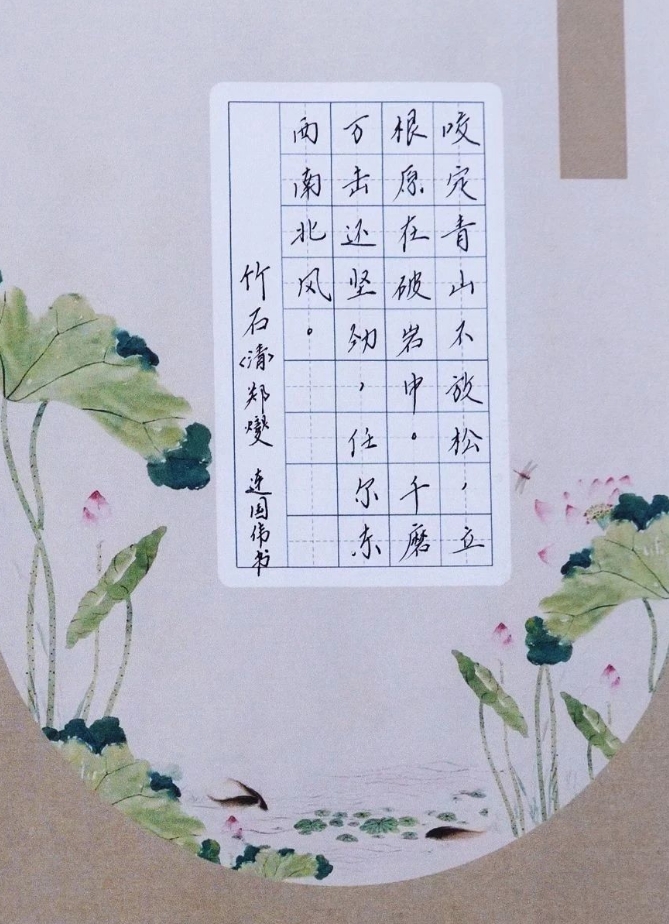 咬定青山不放松，立
根原在破岩中。千磨
万击还坚劲，任尔东
西南北风。
竹石〈清〉郑燮 连国伟书